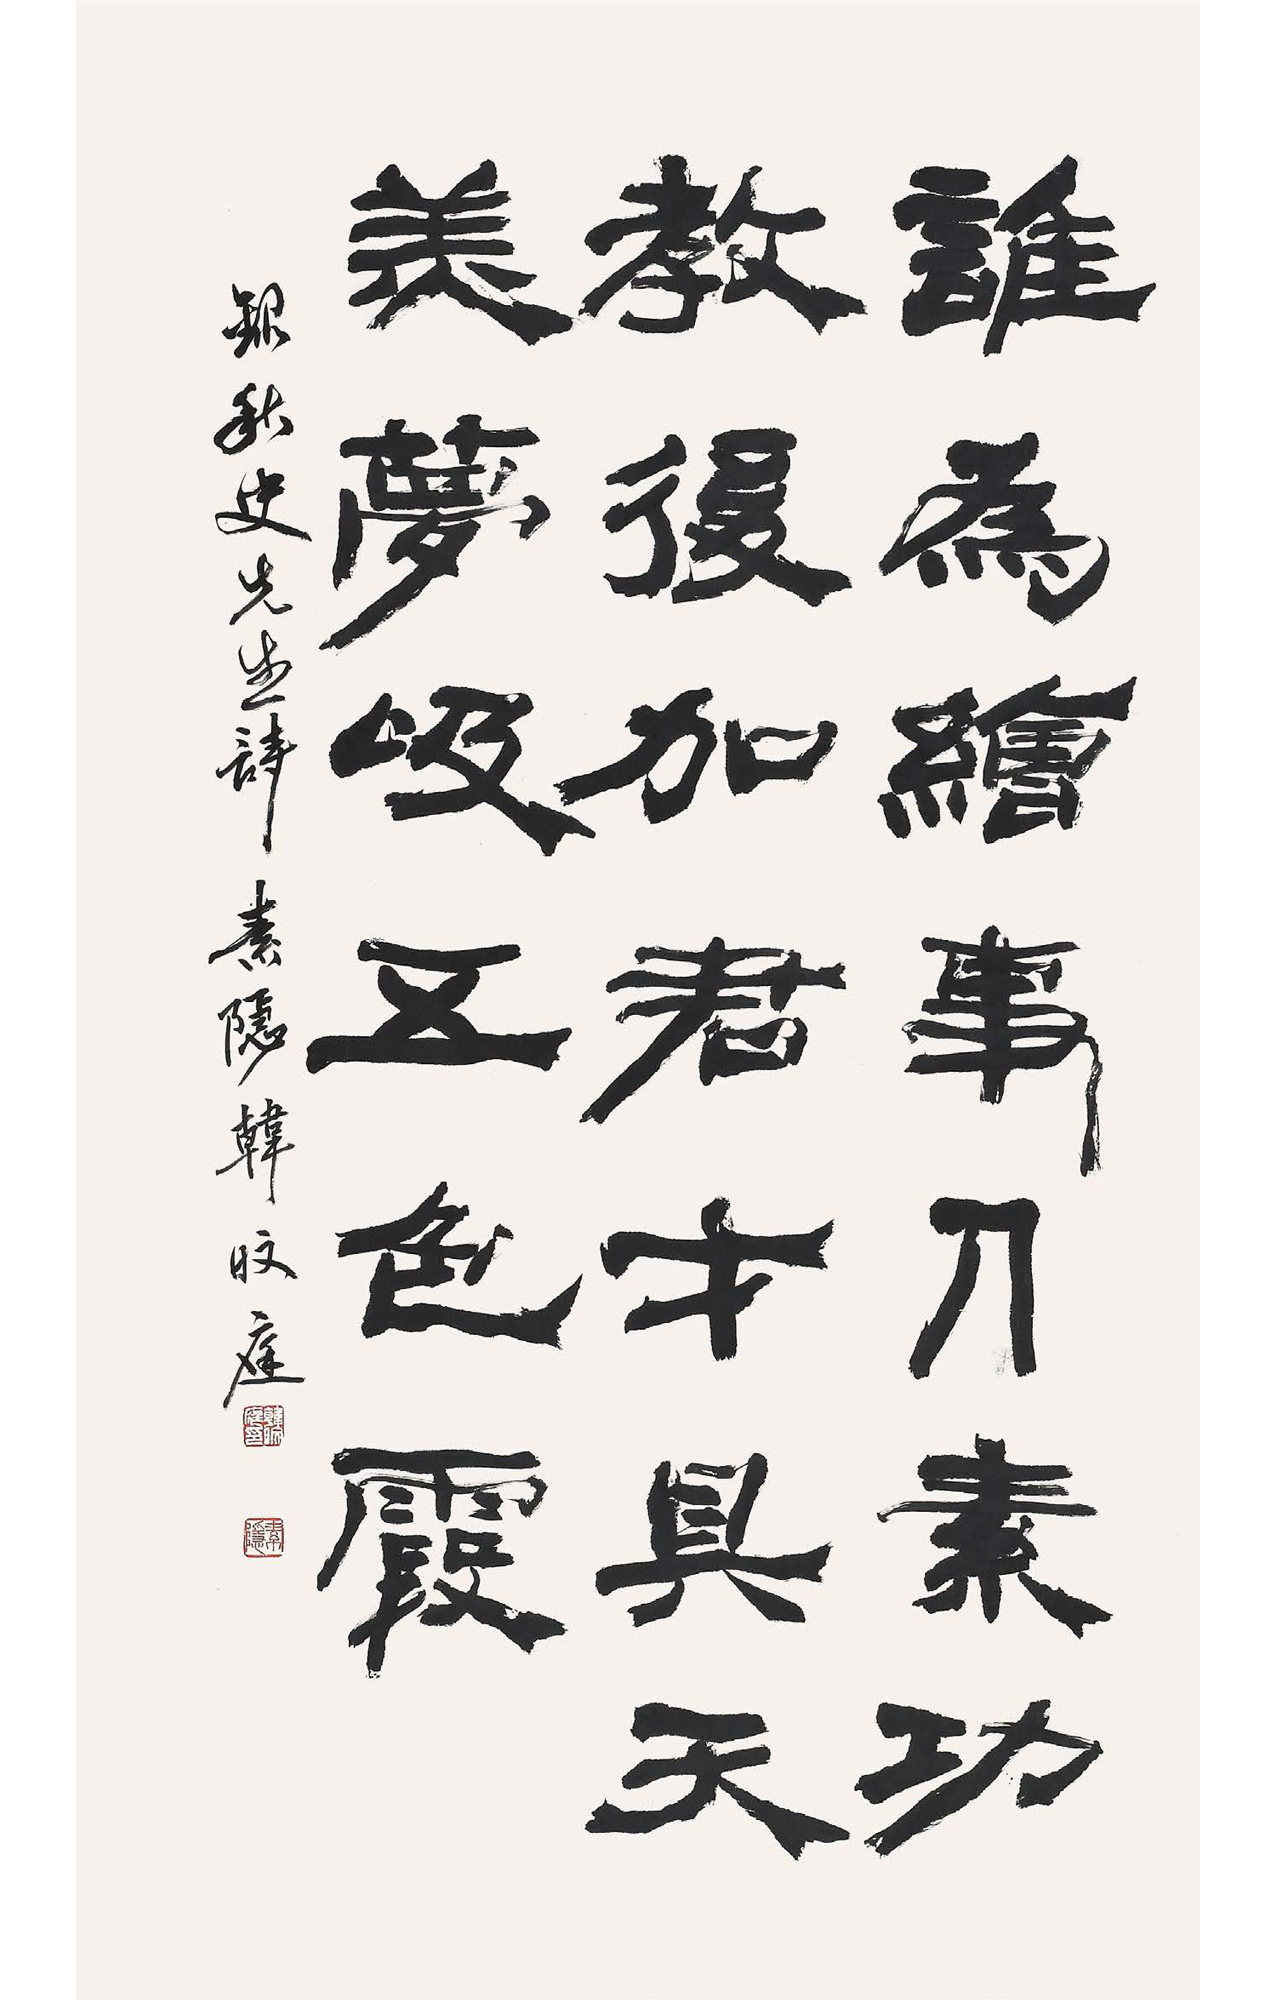 誰為繪事刀素功
教後加君才具天
美夢吸五色霞
錄秋史先生詩 素隱韓旼庭
素隱